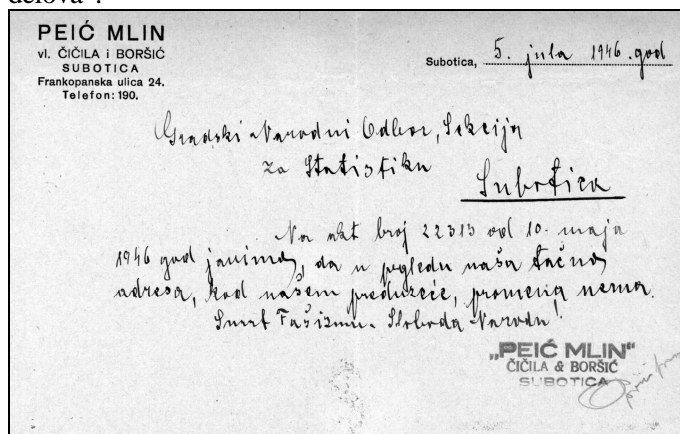 delova".
PEIĆ MLIN
vl. ČIČILA i BORŠIĆ
SUBOTICA
Frankopanska ulica 24.
Telefon: 190.
Subotica, 5. jula 1946. god
Gradski Narodni Odbor, Sekcija
za Statistiku
Subotica
Na akt broj 22313 od 10. maja
1946 god javimo, da u pgledu naša tačna
adresa, kod našem preduzeće, promena nema.
Smrt Fašizmu. Sloboda Narodu!
„PEIĆ MLIN"
ČIČILA & BORŠIĆ
SUBOTICA